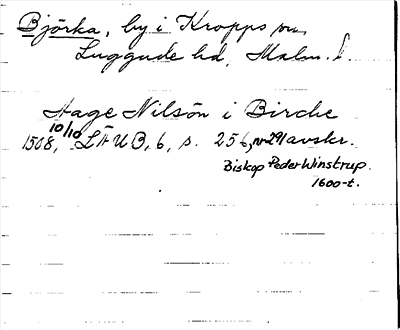 Björka, by i Kropps sn,
Luggude hd, Malm. l.
Aage Nilsön i Birche
1508, 10/10 LÄUB, 6, s. 256, nr 291 avskr.
Biskop Peder Winstrup.
1600-t.